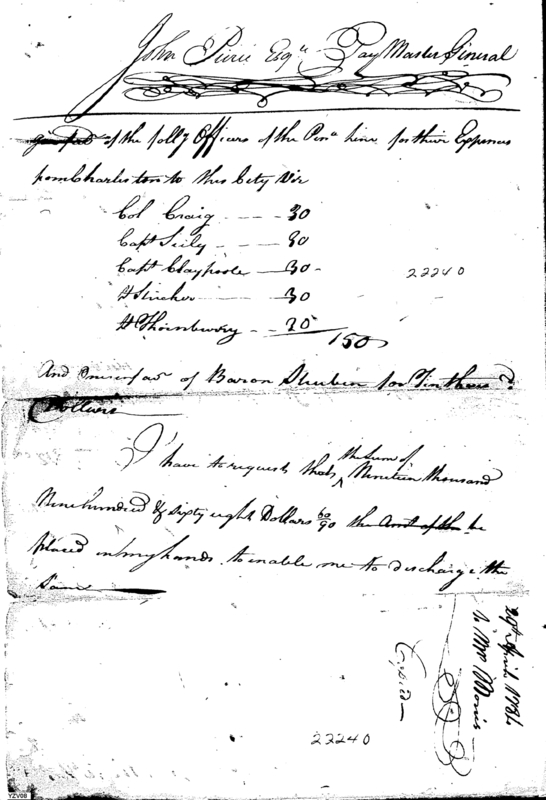 John Pierce Esqr Pay Master General
of the follg Officers of the Pena line for their Expences
from Charleston to this City Viz
Col Craig - - - 30
Capt Seily - - - 30
Capt Claypoole - 30 -
22240
Lt Stricker - - - 30
Lt Thornbury - - 30
150
And one in favr of Baron Steuben for Ten thous?
Dollars
I have to request that the Sum of Nineteen thousand
Nine hundred & sixty eight Dollars 60/90 the Amt of the be
placed in my hands to enable me to discharge the
Same
29th April 178
To Mr Morris
Copied
22240
YZV08